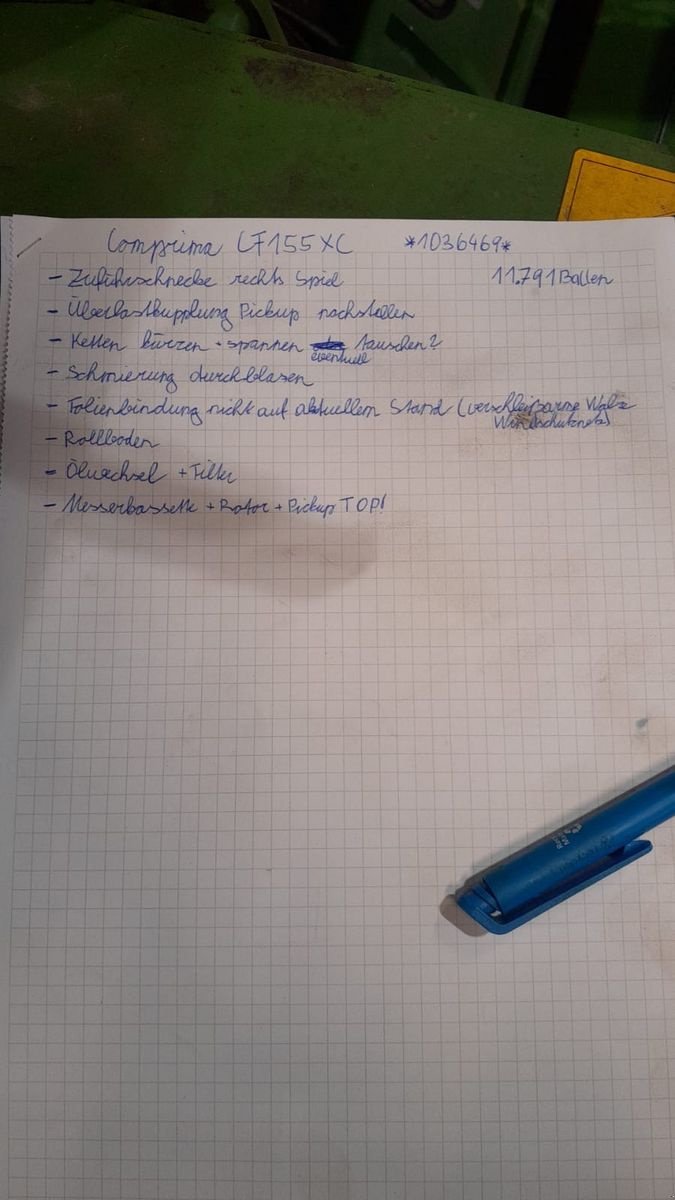 Comprima CF155XC *1036469*
- Zuführschnecke rechts Spiel 11.791 Ballen
- Überlastkupplung Pickup nachstellen
- Ketten kürzen + spannen eventuell tauschen?
- Schmierung durchblasen
- Folienbindung nicht auf aktuellem Stand (verschleißarme Walze
Windschutznetz)
- Rollboden
- Ölwechsel + Filter
- Messerkassette + Rotor + Pickup TOP!